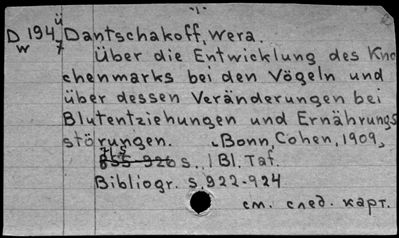 ü
D 194 Dantschakoff, Wera.
w 7
Über die Entwicklung des Kno
chenmarks bei den Vögeln und
über dessen Veränderungen bei
Blutentziehungen und Ernährungs
störungen. Bonn, Cohen, 1909,
855-926 s. 1 Bl. Taf.
Bibliogr. s. 922-924
см. след. карт.